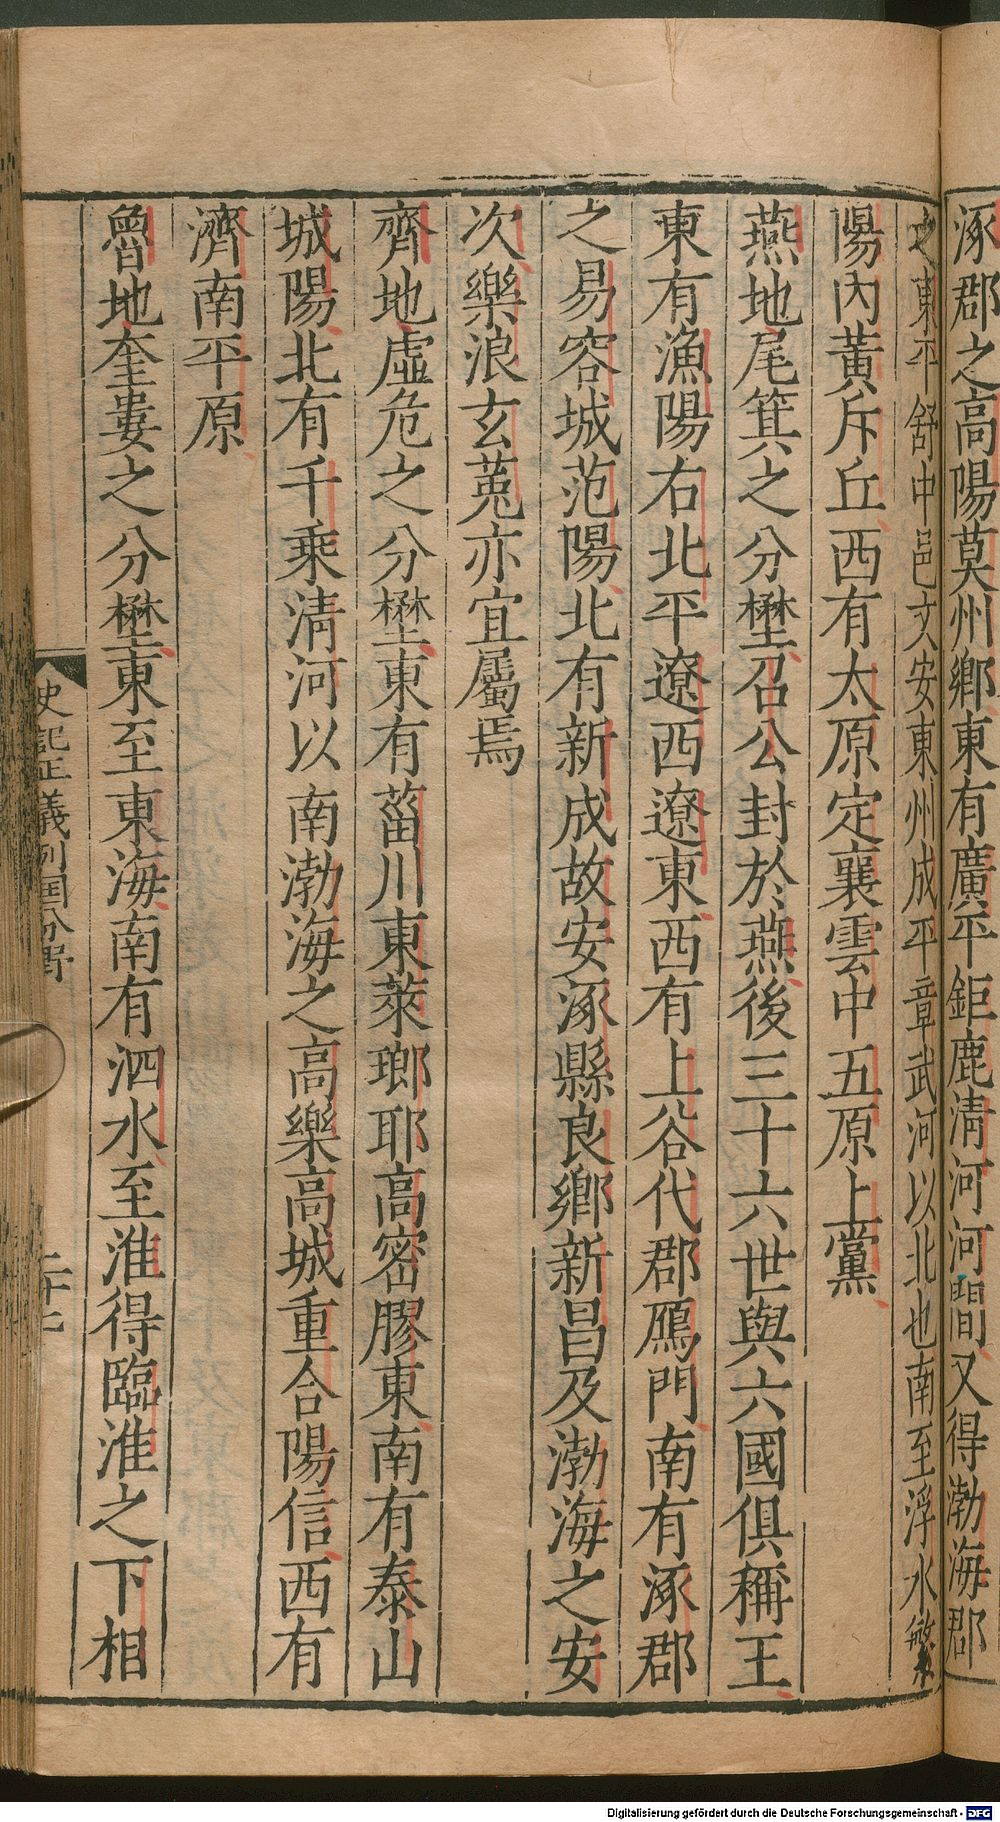 涿郡之高陽莫州鄉東有廣平鉅鹿淸河河間又得渤海郡
之東平舒中邑文安東州成平章武河以北也南至浮水繁
陽內黃斥丘西有太原定襄雲中五原上黨
燕地尾箕之分壄召公封於燕後三十六世與六國俱稱王
東有漁陽右北平遼西遼東西有上谷代郡鴈門南有涿郡
之易容城范陽北有新成故安涿縣良鄉新昌及渤海之安
次樂浪玄菟亦宜屬焉
齊地虛危之分壄東有菑川東萊瑯耶高密膠東南有泰山
城陽北有千乘淸河以南渤海之高樂高城重合陽信西有
濟南平原
魯地奎婁之分壄東至東海南有泗水至淮得臨淮之下相
史記正義列国分野
二十七
Digitalisierung gefördert durch die Deutsche Forschungsgemeinschaft - DFG